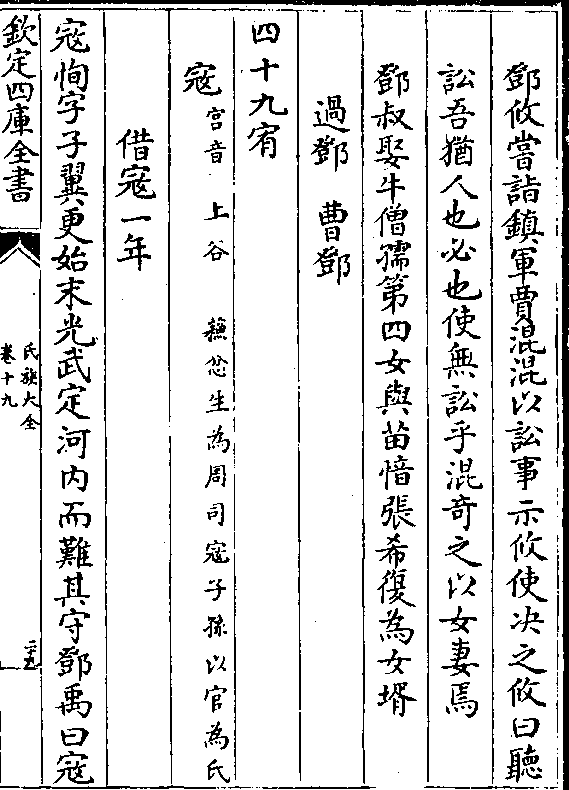 鄧攸嘗詣鎮軍賈混混以訟事示攸使决之攸曰聽
訟吾猶人也必也使無訟乎混奇之以女妻焉
鄧叔娶牛僧孺第四女與苗愔張希復為女壻
過鄧　曹鄧
四十九宥
寇宫音　上谷　蘓忿生為周司寇子孫以官為氏
借寇一年
寇恂字子翼更始末光武定河内而難其守鄧禹曰寇
欽定四庫全書
氏族大全
卷十九
二十五